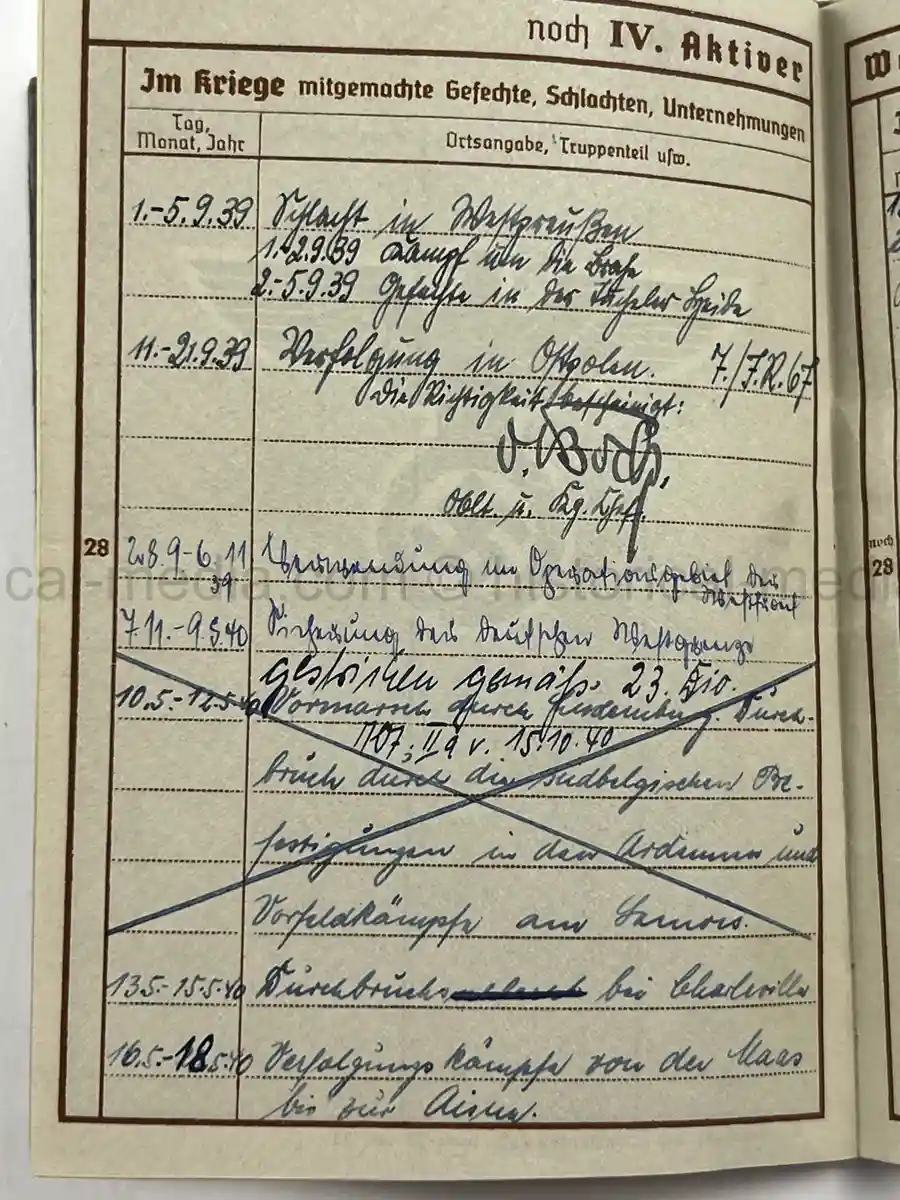 noch IV. Aktiver
Im Kriege mitgemachte Gefechte, Schlachten, Unternehmungen
Tag, Monat, Jahr
Ortsangabe, Truppenteil usw.
1.-5.9.39 Schlacht in Westpreußen
1.-2.9.39 Kampf um die Brahe
2.-5.9.39 Gefechte in der Tucheler Heide
11.-21.9.39 Verfolgung in Ostpolen. 7./I.R.67
Die Richtigkeit bescheinigt:
v. Bock
Oblt. u. Kp. Chef.
28
28.9-6.11 Verwendung im Operationsgebiet der
39 Westfront
7.11.-9.5.40 Sicherung der deutschen Westgrenze
gestrichen gemäß 23. Div.
10.5.-12.5.40 Vormarsch durch Luxemburg. Durch-
IIa v. 15.10.40
bruch durch die südbelgischen Be-
festigungen in den Ardennen und
Vorfeldkämpfe am Semois.
13.5.-15.5.40 Durchbruch bei Charleville
16.5.-18.5.40 Verfolgungskämpfe von der Maas
bis zur Aisne.
noch
28